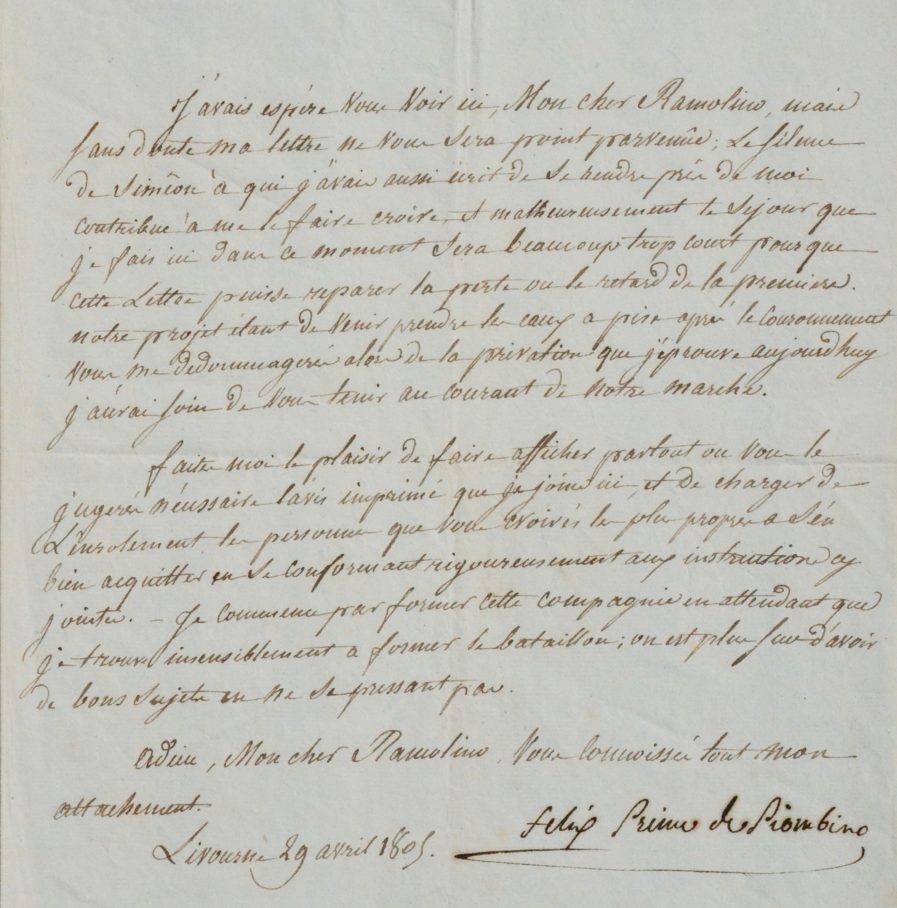 J'avais espéré vous voir ici, Mon cher Ramolino, mais
sans doute ma lettre ne vous sera point parvenüe; Le silence
de Siméon à qui j'avais aussi écrit de se rendre près de moi
contribue à me le faire croire, et malheureusement le séjour que
je fais ici dans ce moment sera beaucoup trop court pour que
cette Lettre puisse reparer la perte ou le retard de la premiere.
notre projet étant de venir prendre les eaux a pise après le Couronnement
vous me dedommagerés alors de la privation que j'éprouve aujourd'huy
j'aurai soin de vous tenir au courant de notre marche.
faites moi le plaisir de faire afficher partout ou vous le
jugerés nécessaire l'avis imprimé que je joins ici, et de charger de
L'enrolement les personnes que vous croirés les plus propres a s'en
bien acquitter en se conformant rigoureusement aux instructions cy
jointes. – Je commence par former cette compagnie en attendant que
je trouve insensiblement a former le bataillon; on est plus sur d'avoir
de bons sujets en ne se pressant pas.
adieu, Mon cher Ramolino, vous connoissés tout mon
attachement.
Livourne 29 avril 1805.
Felix Prince de Piombino